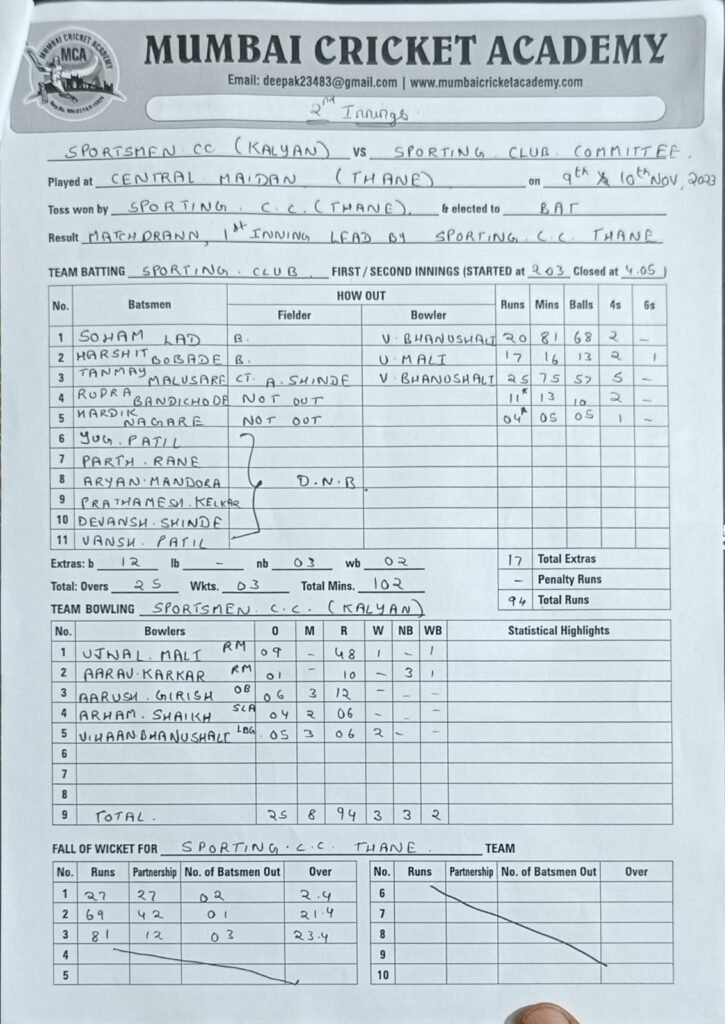 MUMBAI CRICKET ACADEMY
MCA
MUMBAI CRICKET ACADEMY
Email: deepak23483@gmail.com | www.mumbaicricketacademy.com
2nd Innings
SPORTSMEN CC (KALYAN) VS SPORTING CLUB COMMITTEE.
Played at CENTRAL MAIDAN (THANE) on 9th & 10th NOV, 2023
Toss won by SPORTING C.C. (THANE). & elected to BAT
Result MATCH DRAWN, 1st INNING LEAD BY SPORTING C.C. THANE
TEAM BATTING SPORTING CLUB FIRST / SECOND INNINGS (STARTED at 2.03 Closed at 4.05)
No. Batsmen HOW OUT Runs Mins Balls 4s 6s
Fielder Bowler
1 SOHAM LAD B. V. BHANUSHALI 20 81 68 2 –
2 HARSHIT BOBADE B. U. MALI 17 16 13 2 1
3 TANMAY MALUSARE CT. A. SHINDE V. BHANUSHALI 25 75 57 5 –
4 RUDRA BANDICHODE NOT OUT 11* 13 10 2 –
5 HARDIK NAGARE NOT OUT 04* 05 05 1 –
6 YUG. PATIL
7 PARTH. RANE
8 ARYAN. MANDORA D.N.B.
9 PRATHAMESH. KELKAR
10 DEVANSH. SHINDE
11 VANSH. PATIL
Extras: b 12 lb – nb 03 wb 02 17 Total Extras
– Penalty Runs
Total: Overs 25 Wkts. 03 Total Mins. 102 94 Total Runs
TEAM BOWLING SPORTSMEN C.C. (KALYAN)
No. Bowlers O M R W NB WB Statistical Highlights
1 UJWAL. MALI RM 09 – 48 1 – 1
2 AARAV. KARKAR RM 01 – 10 – 3 1
3 AARUSH. GIRISH OB 06 3 12 – – –
4 ARHAM. SHAIKH SLA 04 2 06 – – –
5 VIHAAN BHANUSHALI LBG 05 3 06 2 – –
6
7
8
9 TOTAL. 25 8 94 3 3 2
FALL OF WICKET FOR SPORTING C.C. THANE TEAM
No. Runs Partnership No. of Batsmen Out Over No. Runs Partnership No. of Batsmen Out Over
1 27 27 02 2.4 6
2 69 42 01 21.4 7
3 81 12 03 23.4 8
4 9
5 10